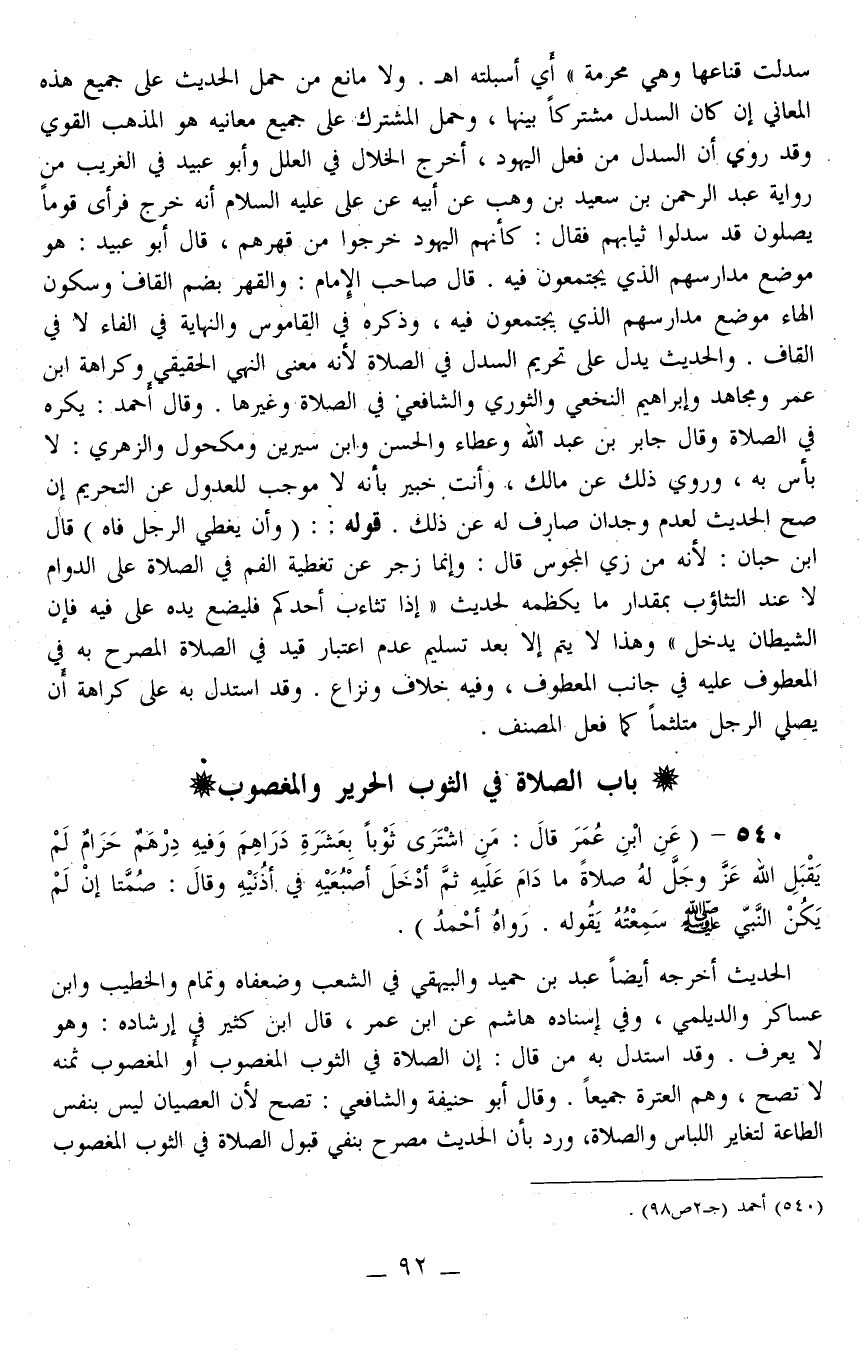 سدلت قناعها وهي محرمة » أي أسبلته اهـ . ولا مانع من حمل الحديث على جميع هذه
المعاني إن كان السدل مشتركاً بينها ، وحمل المشترك على جميع معانيه هو المذهب القوي
وقد روي أن السدل من فعل اليهود ، أخرج الخلال في العلل وأبو عبيد في الغريب من
رواية عبد الرحمن بن سعيد بن وهب عن أبيه عن علي عليه السلام أنه خرج فرأى قوماً
يصلون قد سدلوا ثيابهم فقال : كأنهم اليهود خرجوا من قهرهم ، قال أبو عبيد : هو
موضع مدارسهم الذي يجتمعون فيه . قال صاحب الإمام : والقهر بضم القاف وسكون
الهاء موضع مدارسهم الذي يجتمعون فيه ، وذكره في القاموس والنهاية في الفاء لا في
القاف . والحديث يدل على تحريم السدل في الصلاة لأنه معنى النهي الحقيقي وكراهة ابن
عمر ومجاهد وإبراهيم النخعي والثوري والشافعي في الصلاة وغيرها . وقال أحمد : يكره
في الصلاة وقال جابر بن عبد الله وعطاء والحسن وابن سيرين ومكحول والزهري : لا
بأس به ، وروي ذلك عن مالك ، وأنت خبير بأنه لا موجب للعدول عن التحريم إن
صح الحديث لعدم وجدان صارف له عن ذلك . قوله : : ( وأن يغطي الرجل فاه ) قال
ابن حبان : لأنه من زي المجوس قال : وإنما زجر عن تغطية الفم في الصلاة على الدوام
لا عند التثاؤب بمقدار ما يكظمه لحديث « إذا تثاءب أحدكم فليضع يده على فيه فإن
الشيطان يدخل » وهذا لا يتم إلا بعد تسليم عدم اعتبار قيد في الصلاة المصرح به في
المعطوف عليه في جانب المعطوف ، وفيه خلاف ونزاع . وقد استدل به على كراهة أن
يصلي الرجل متلثماً كما فعل المصنف .
باب الصلاة في الثوب الحرير والمغصوب
٥٤٠ – ( عَنِ ابْنِ عُمَرَ قالَ : مَنِ اشْتَرَى ثَوْباً بِعَشَرَةِ دَرَاهِمَ وَفيهِ دِرْهَمٌ حَرَامٌ لَمْ
يَقْبَلِ الله عَزَّ وجَلَّ لهُ صلاةً ما دَامَ عَلَيهِ ثمَّ أدْخَلَ أصْبُعَيْهِ في أذُنَيْهِ وقالَ : صُمَّتا إنْ لَمْ
يَكُنْ النَّبيّ ﷺ سَمِعْتُهُ يَقُوله . رَواهُ أحْمدُ ) .
الحديث أخرجه أيضاً عبد بن حميد والبيهقي في الشعب وضعفاه وتمام والخطيب وابن
عساكر والديلمي ، وفي إسناده هاشم عن ابن عمر ، قال ابن كثير في إرشاده : وهو
لا يعرف . وقد استدل به من قال : إن الصلاة في الثوب المغصوب أو المغصوب ثمنه
لا تصح ، وهم العترة جميعاً . وقال أبو حنيفة والشافعي : تصح لأن العصيان ليس بنفس
الطاعة لتغاير اللباس والصلاة، ورد بأن الحديث مصرح بنفي قبول الصلاة في الثوب المغصوب
(٥٤٠) أحمد (جـ٢ص٩٨) .
– ٩٢ –